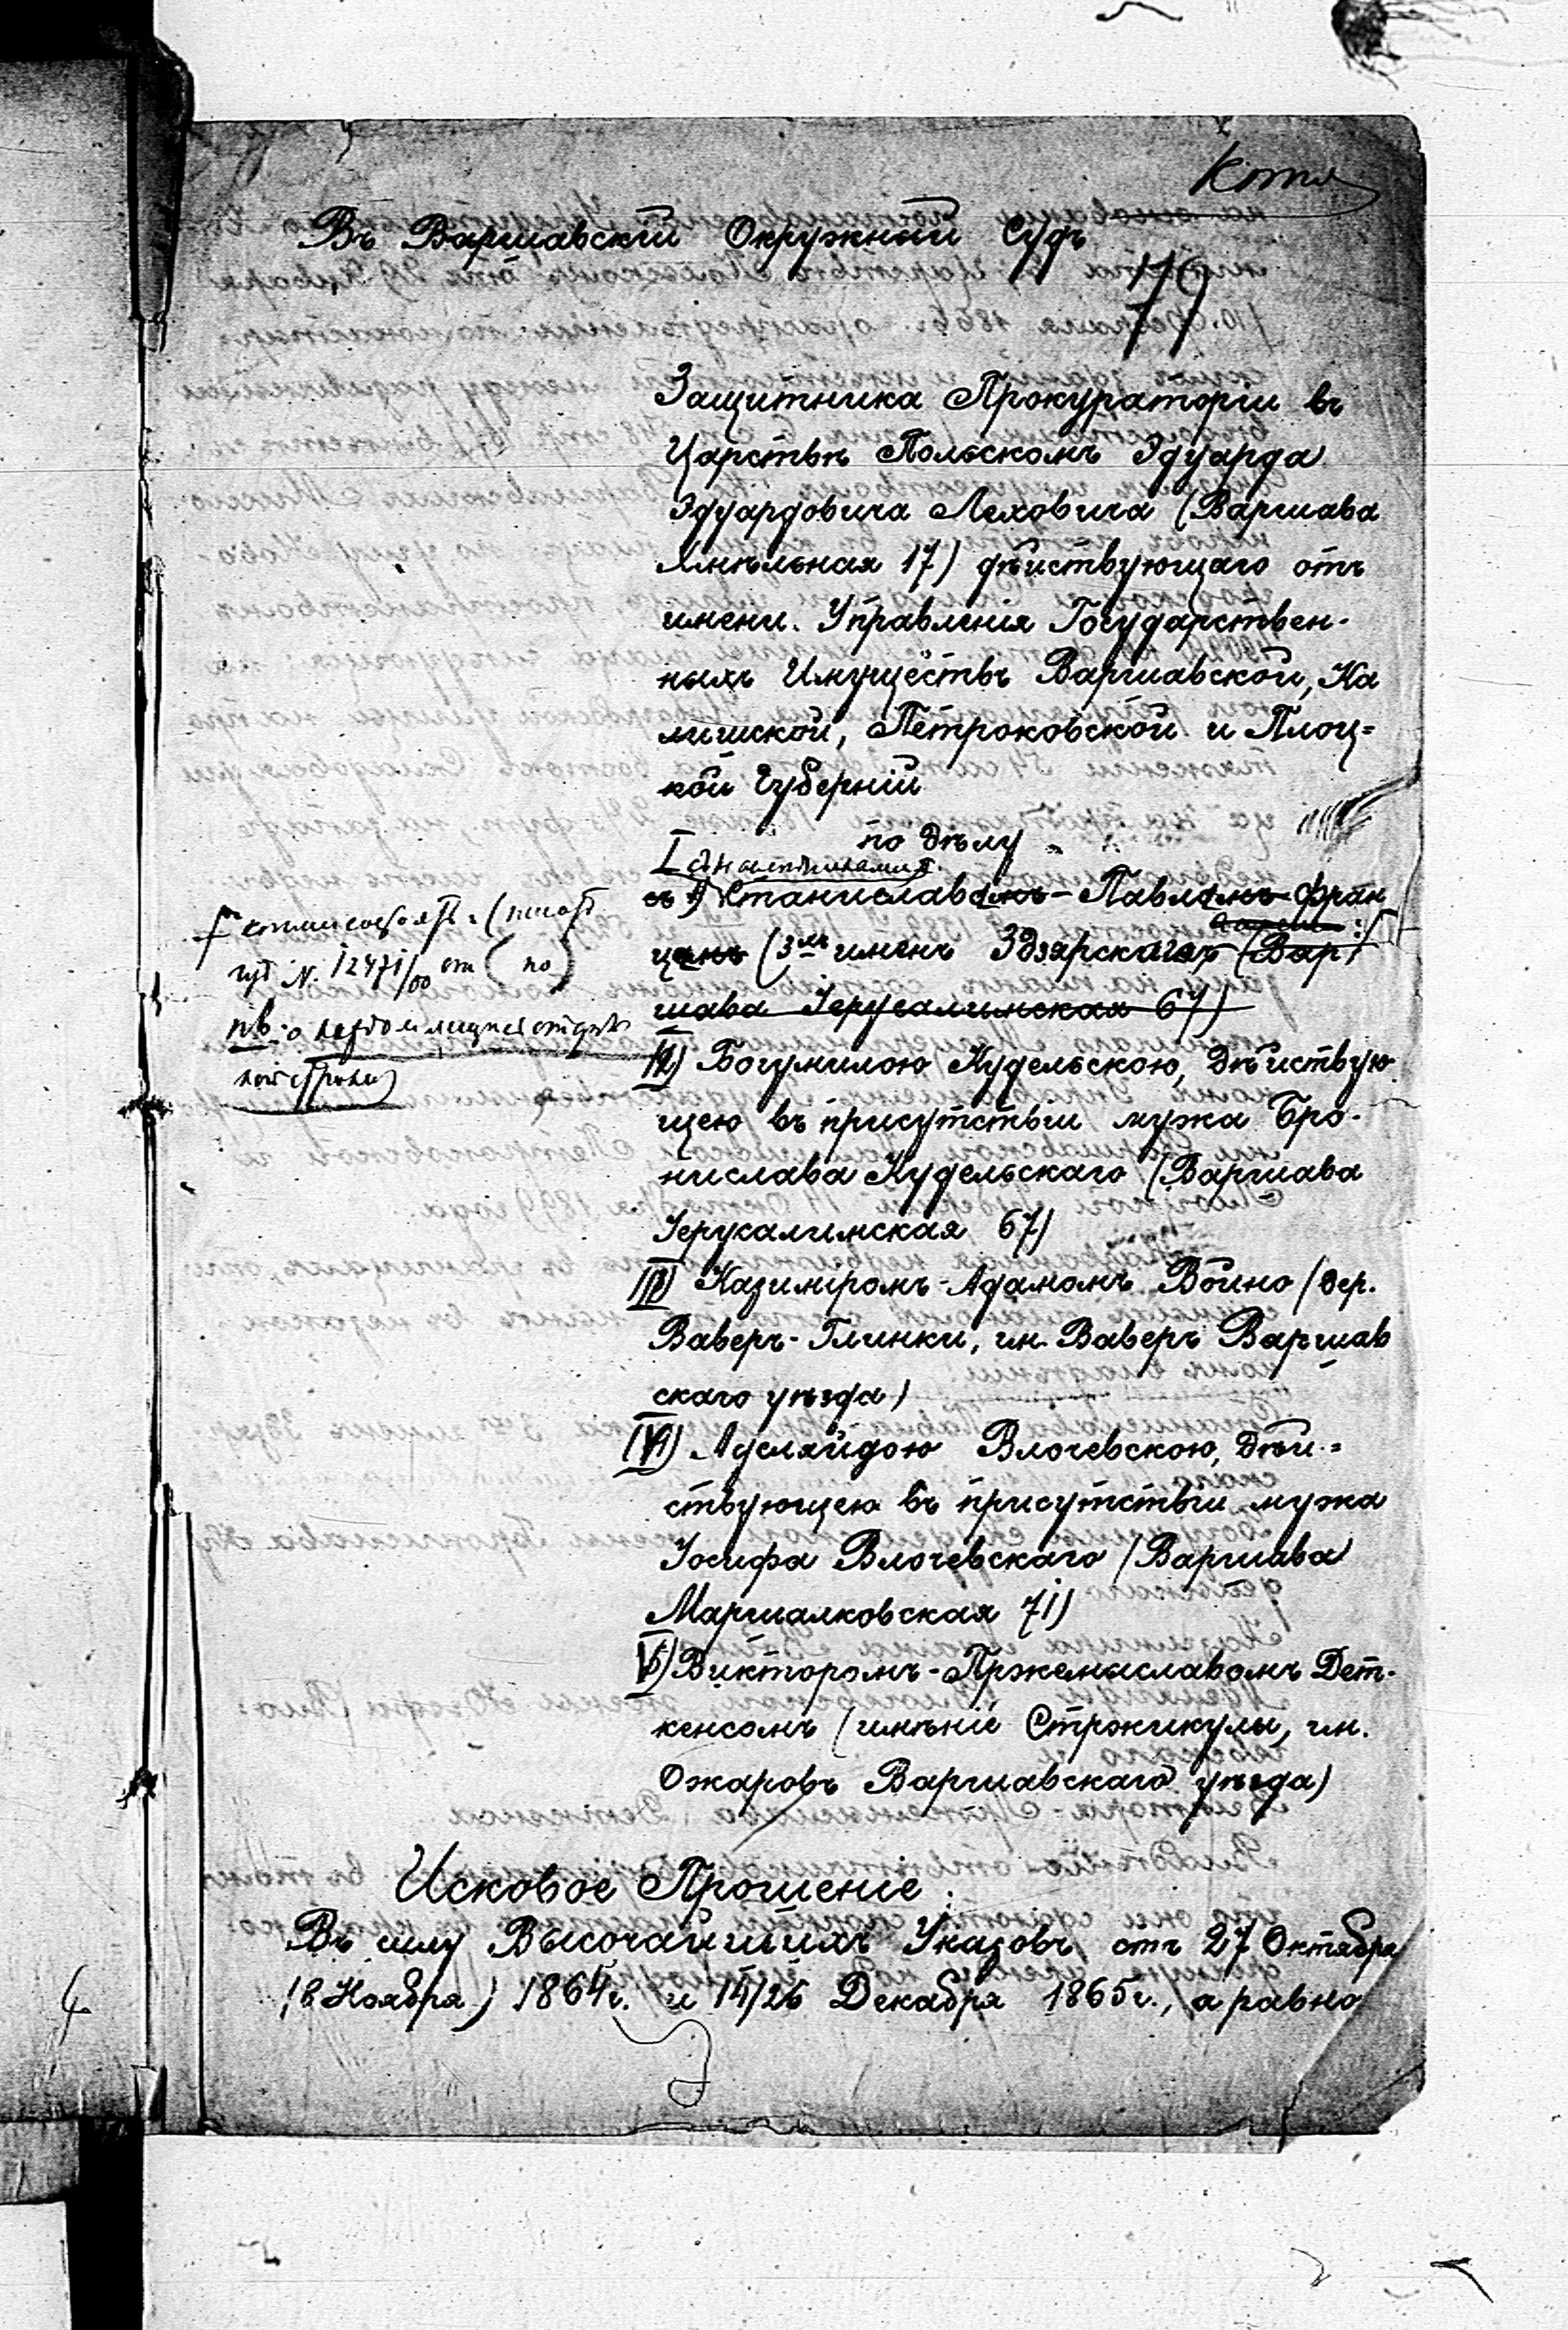 Копія
Въ Варшавскій Окружный Судъ
79
Защитника Прокураторіи въ
Царствѣ Польскомъ Эдуарда
Эдуардовича Леховича (Варшава
Хмѣльная 17) дѣйствующаго отъ
имени Управленія Государствен-
ныхъ Имуществъ Варшавской, Ка
лишской, Петроковской и Плоц=
кой Губерній
по дѣлу
I съ наслѣдниками
съ 1) Станиславомъ-Павломъ-Фран
цемъ (3хъ именъ Здзярскаго (Вар
шава Іерусалимская 67)
II) Богумилою Кудельскою, дѣйствую
щею въ присутствіи мужа Бро-
нислава Кудельскаго (Варшава
Іерусалимская 67)
III) Казиміромъ-Адамомъ Войно (дер.
Ваверъ-Глинки, гм. Ваверъ Варшав
скаго уѣзда)
IV) Аделяйдою Влочевскою, дѣй=
ствующею въ присутствіи мужа
Іосифа Влочевскаго (Варшава
Маршалковская 71)
V) Викторомъ-Пржемыславомъ Дет-
кенсомъ (имѣніе Стржикулы, гм.
Ожаровъ Варшавскаго уѣзда)
№ 12471/00
Исковое Прошеніе.
Въ силу Высочайшихъ Указовъ отъ 27 Октября
(8 Ноября) 1864г. и 14/26 Декабря 1865г., а равно